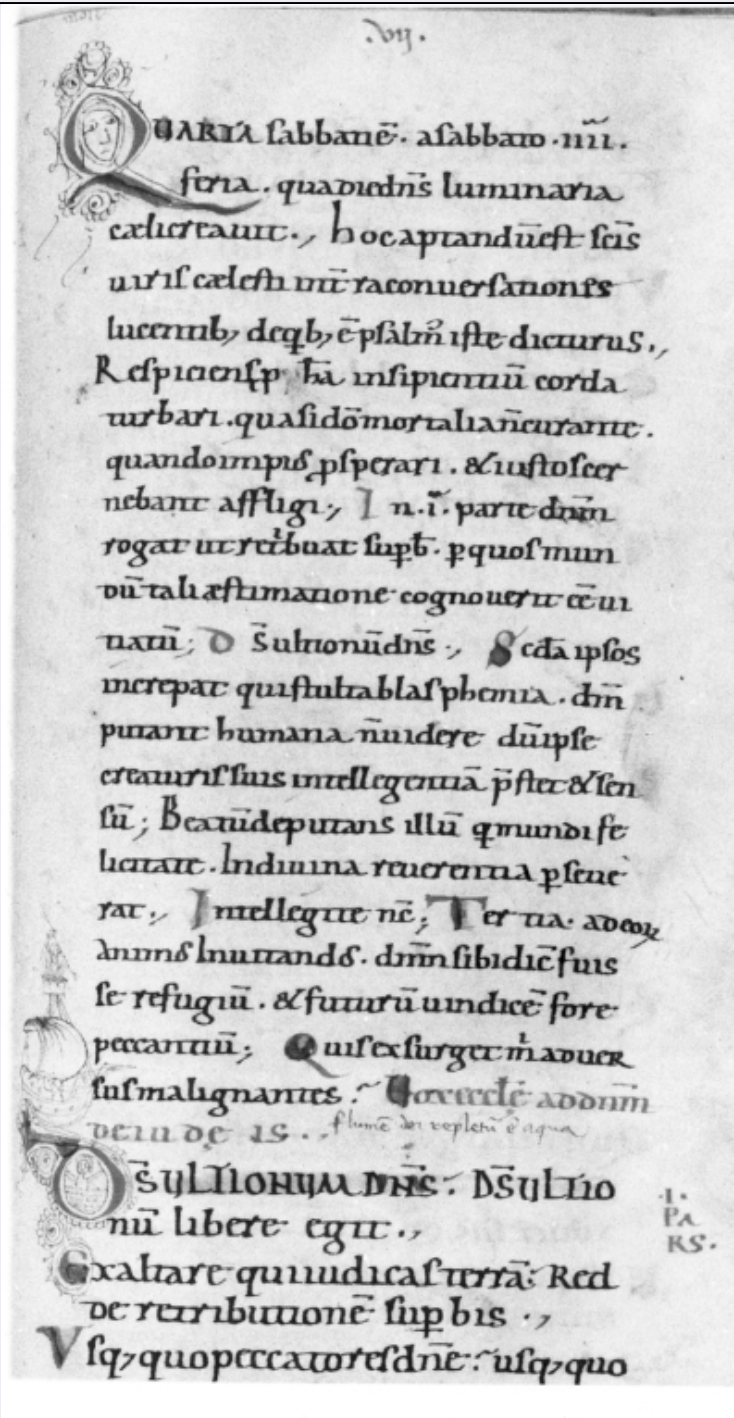 .VII.
QUARTA sabbatē. a sabbato .IIII.
feria. qua dieđns luminaria
cæli creauit., hoc aptandū est sc̄is
uiris cælesti int̄ra conuersationes
lucentib; de q̄b; ē psalm̄ iste dicturus.,
Respiciens p ħa insipientiū corda
turbari. quasi dō mortalia n̄ curante.
quando impios ꝓsperari. & iustos cer
nebant affligi., In .ī. parte dnm̄
rogat ut retribuat suꝑb. ꝑ quos mun
dū tali æstimatione cognouerit eē ui
tiatū; Ds̄ ultionū dn̄s., Scđa ipsos
increpat qui stulta blasphemia. dm̄
putant humana n̄ uidere dū ipse
creaturis suis intellegentiā p̄stet & sen
sū; Beatū deputans illū q mundi fe
licitate. In diuina reuerentia ꝑseue
rat., Intellegite nc̄; Tertia. ad eoꝝ
animos Inuitandos. dnm̄ sibi dic̄ fuis
se refugiū. & futurū uindicē fore
peccantiū; Quis exsurget m̄ aduer
sus malignantes.
flumē dei repletū ē aqua
DS̄ ULTIONUM DN̄S: DS̄ ULTIO
nū libere egit.,
.I.
PA
RS.
Exaltare qui iudicas terrā: Red
de retributionē suꝑbis.,
Vsq; quo peccatores dn̄e: usq; quo